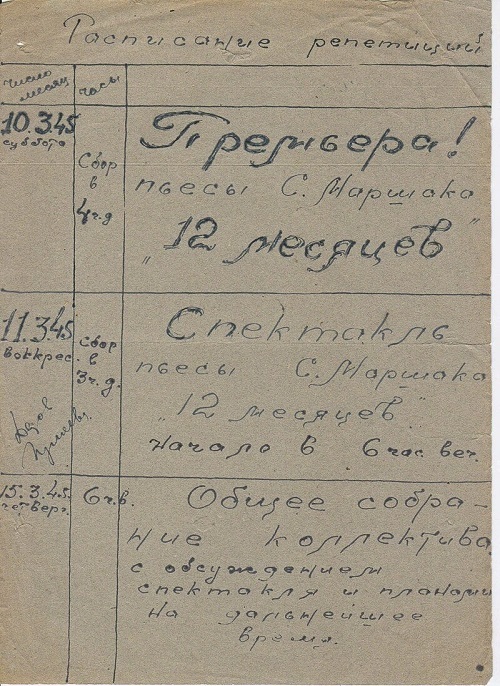 Расписание репетиций
число месяц
часы
10.3.45
суббота
Сбор
в
4ч.д
Премьера!
пьесы С. Маршака
„12 месяцев"
11.3.45
воскрес.
Сбор
в
3ч.д.
Спектакль
пьесы С. Маршака
„12 месяцев"
Начало в 6 час веч.
15.3.45.
четверг.
6ч.в.
Общее собра-
ние коллектива
с обсуждением
спектакля и планами
на дальнейшее
время.